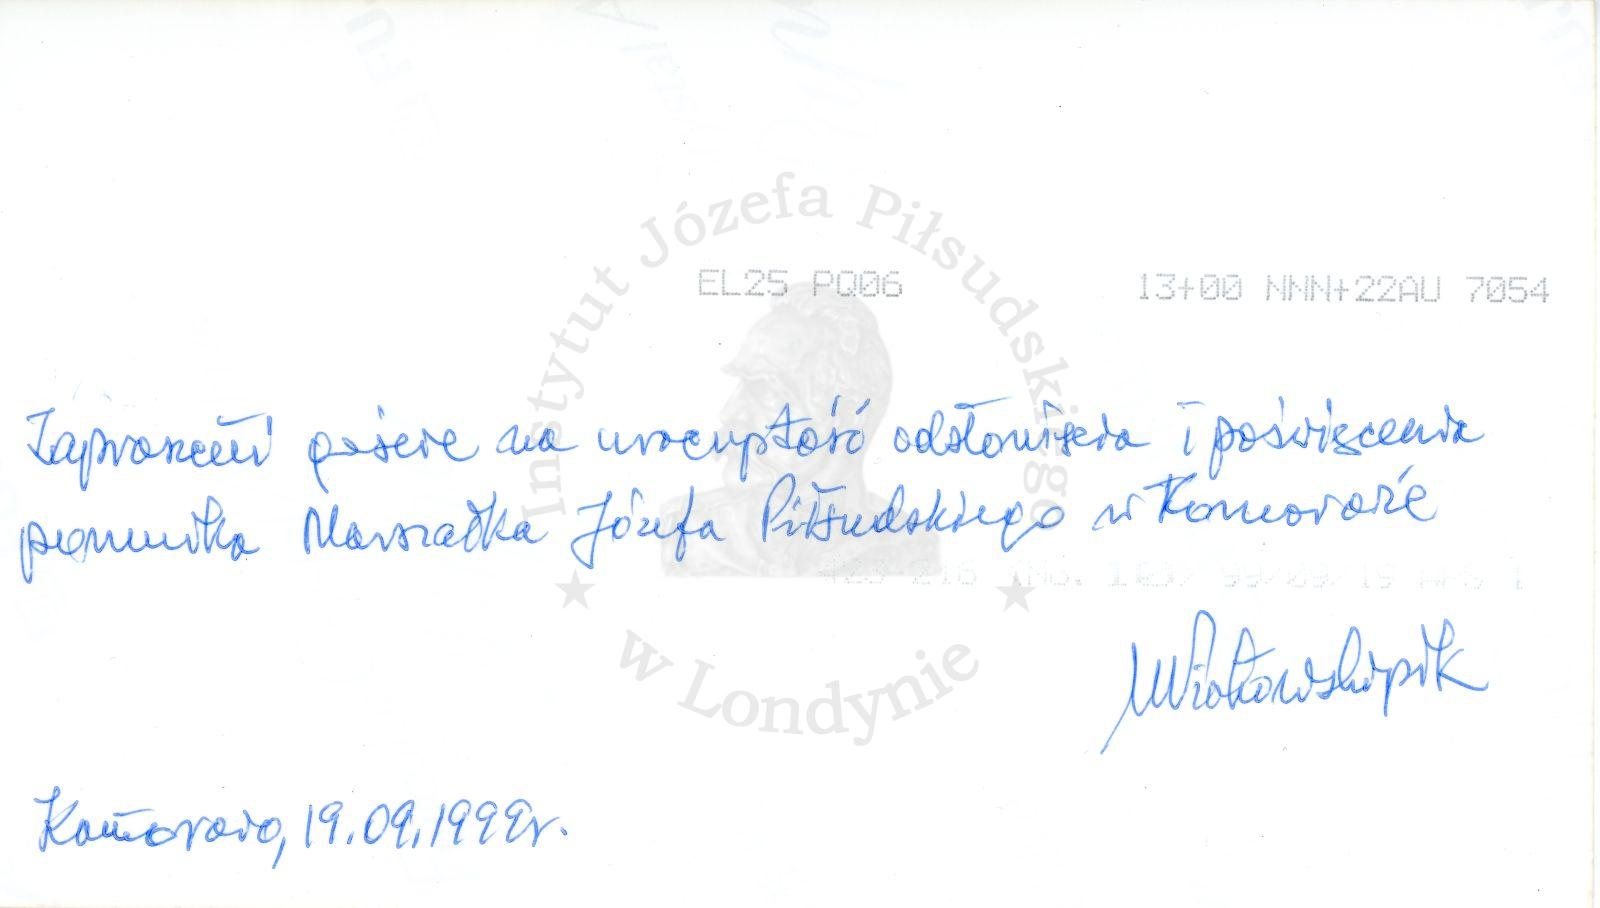 Instytut Józefa Piłsudskiego
EL25 PQ06 13+00 NNN+22AU 7054
Zaproszeni goście na uroczystość odsłonięcia i poświęcenia
pomnika Marszałka Józefa Piłsudskiego w Komorowie
w Londynie
Komorowo, 19.09.1999r.